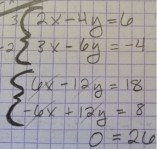 3 { 2x - 4y = 6
-2 { 3x - 6y = -4
{ 6x - 12y = 18
{ -6x + 12y = 8
0 = 26